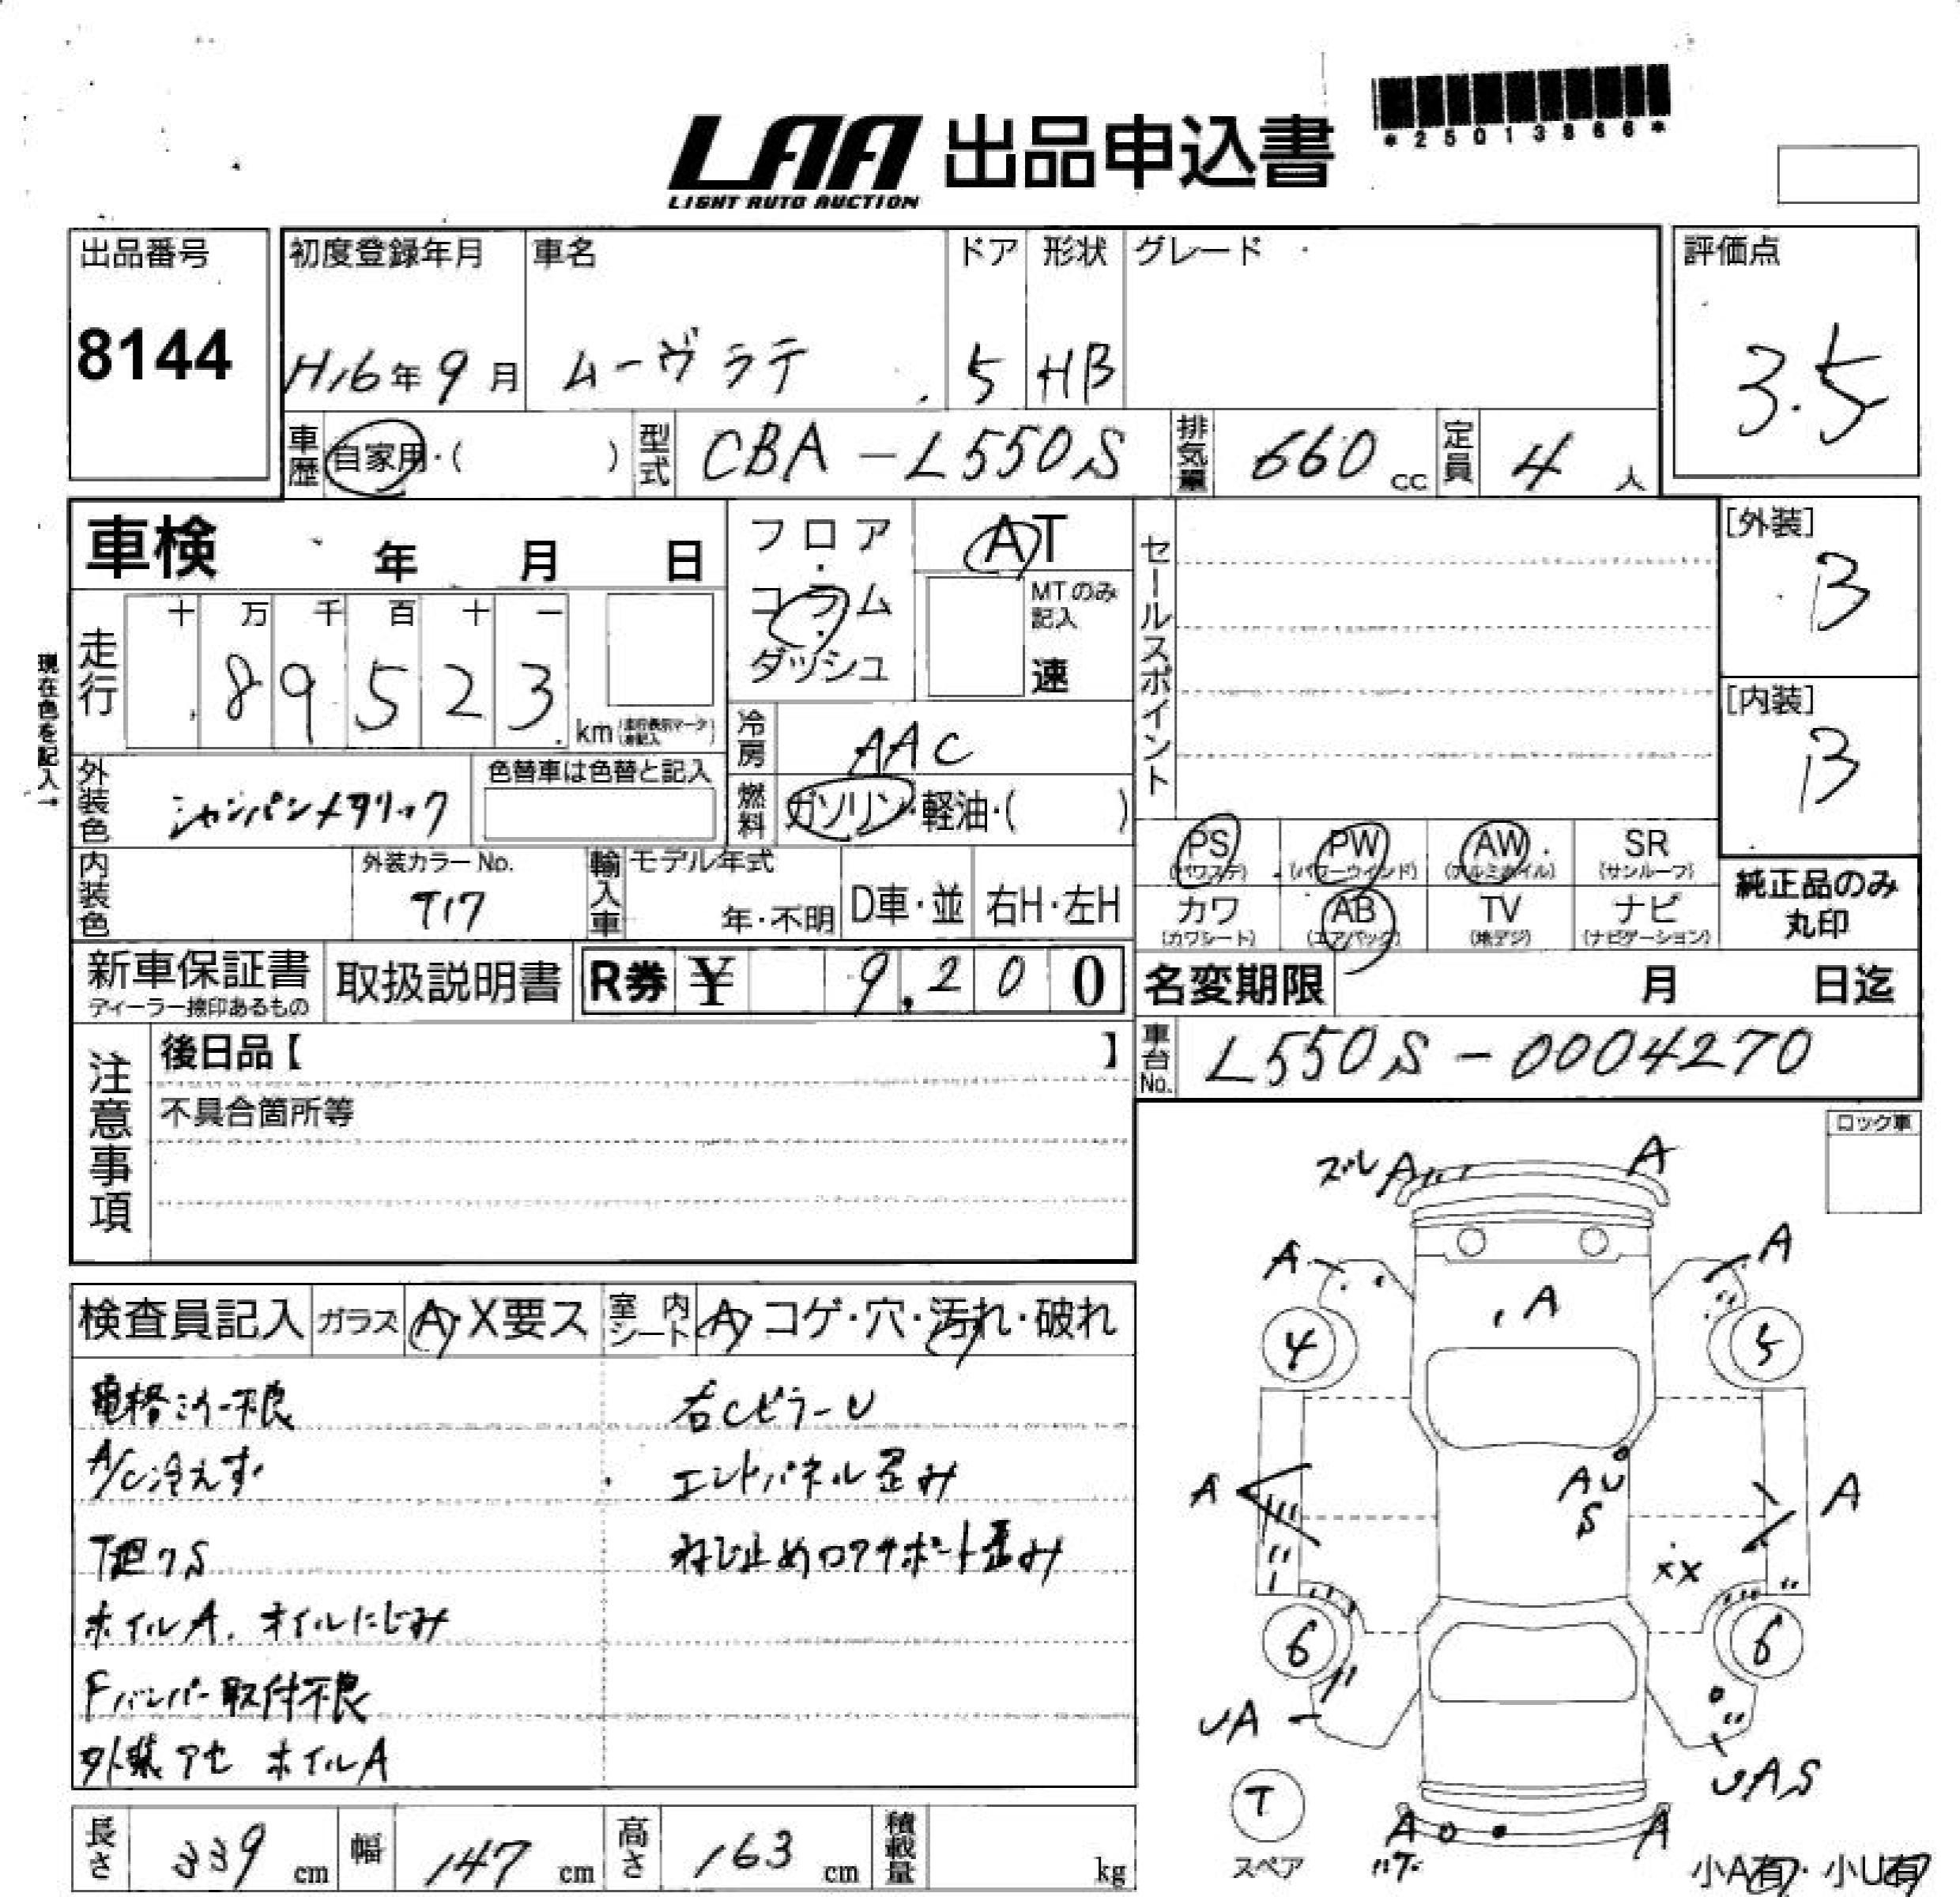 *25013866*
LAA 出品申込書
LIGHT AUTO AUCTION
出品番号 初度登録年月 車名 ドア 形状 グレード 評価点
8144 H16年9月 ムーヴラテ 5 HB 3.5
車歴 自家用・( ) 型式 CBA-L550S 排気量 660cc 定員 4人
車検 年 月 日 フロア・コラム・ダッシュ AT セールスポイント [外装] B
MTのみ記入 速
現在色を記入→
走行 十 万 千 百 十 一
89523 km
[内装] B
冷房 AAC
外装色 シャンパンメタリック 色替車は色替と記入 燃料 ガソリン・軽油・( )
PS (パワステ) PW (パワーウインド) AW (アルミホイル) SR (サンルーフ)
内装色 外装カラーNo. T17 輸入車 モデル年式 年・不明 D車・並 右H・左H
カワ (カワシート) AB (エアバック) TV (地デジ) ナビ (ナビゲーション) 純正品のみ丸印
新車保証書 ディーラー捺印あるもの 取扱説明書 R券 ¥ 9,200 名変期限 月 日迄
注意事項 後日品【 】 車台No. L550S-0004270
不具合箇所等
ロック車
検査員記入 ガラス A・X要ス 室内シート A コゲ・穴・汚れ・破れ
電格ミラー不良 右CピラーU
A/C冷えず エンドパネル歪み
ねじ止めロアサポート歪み
ホイルA. オイルにじみ
Fバンパー取付不良
外装アセ ホイルA
長さ 339cm 幅 147cm 高さ 163cm 積載量 kg
ズレ A A
A A
A
4 5
A AU A
S
XX
6 6
UA UAS
T
スペア
A A
ハゲ
小A有・小U有